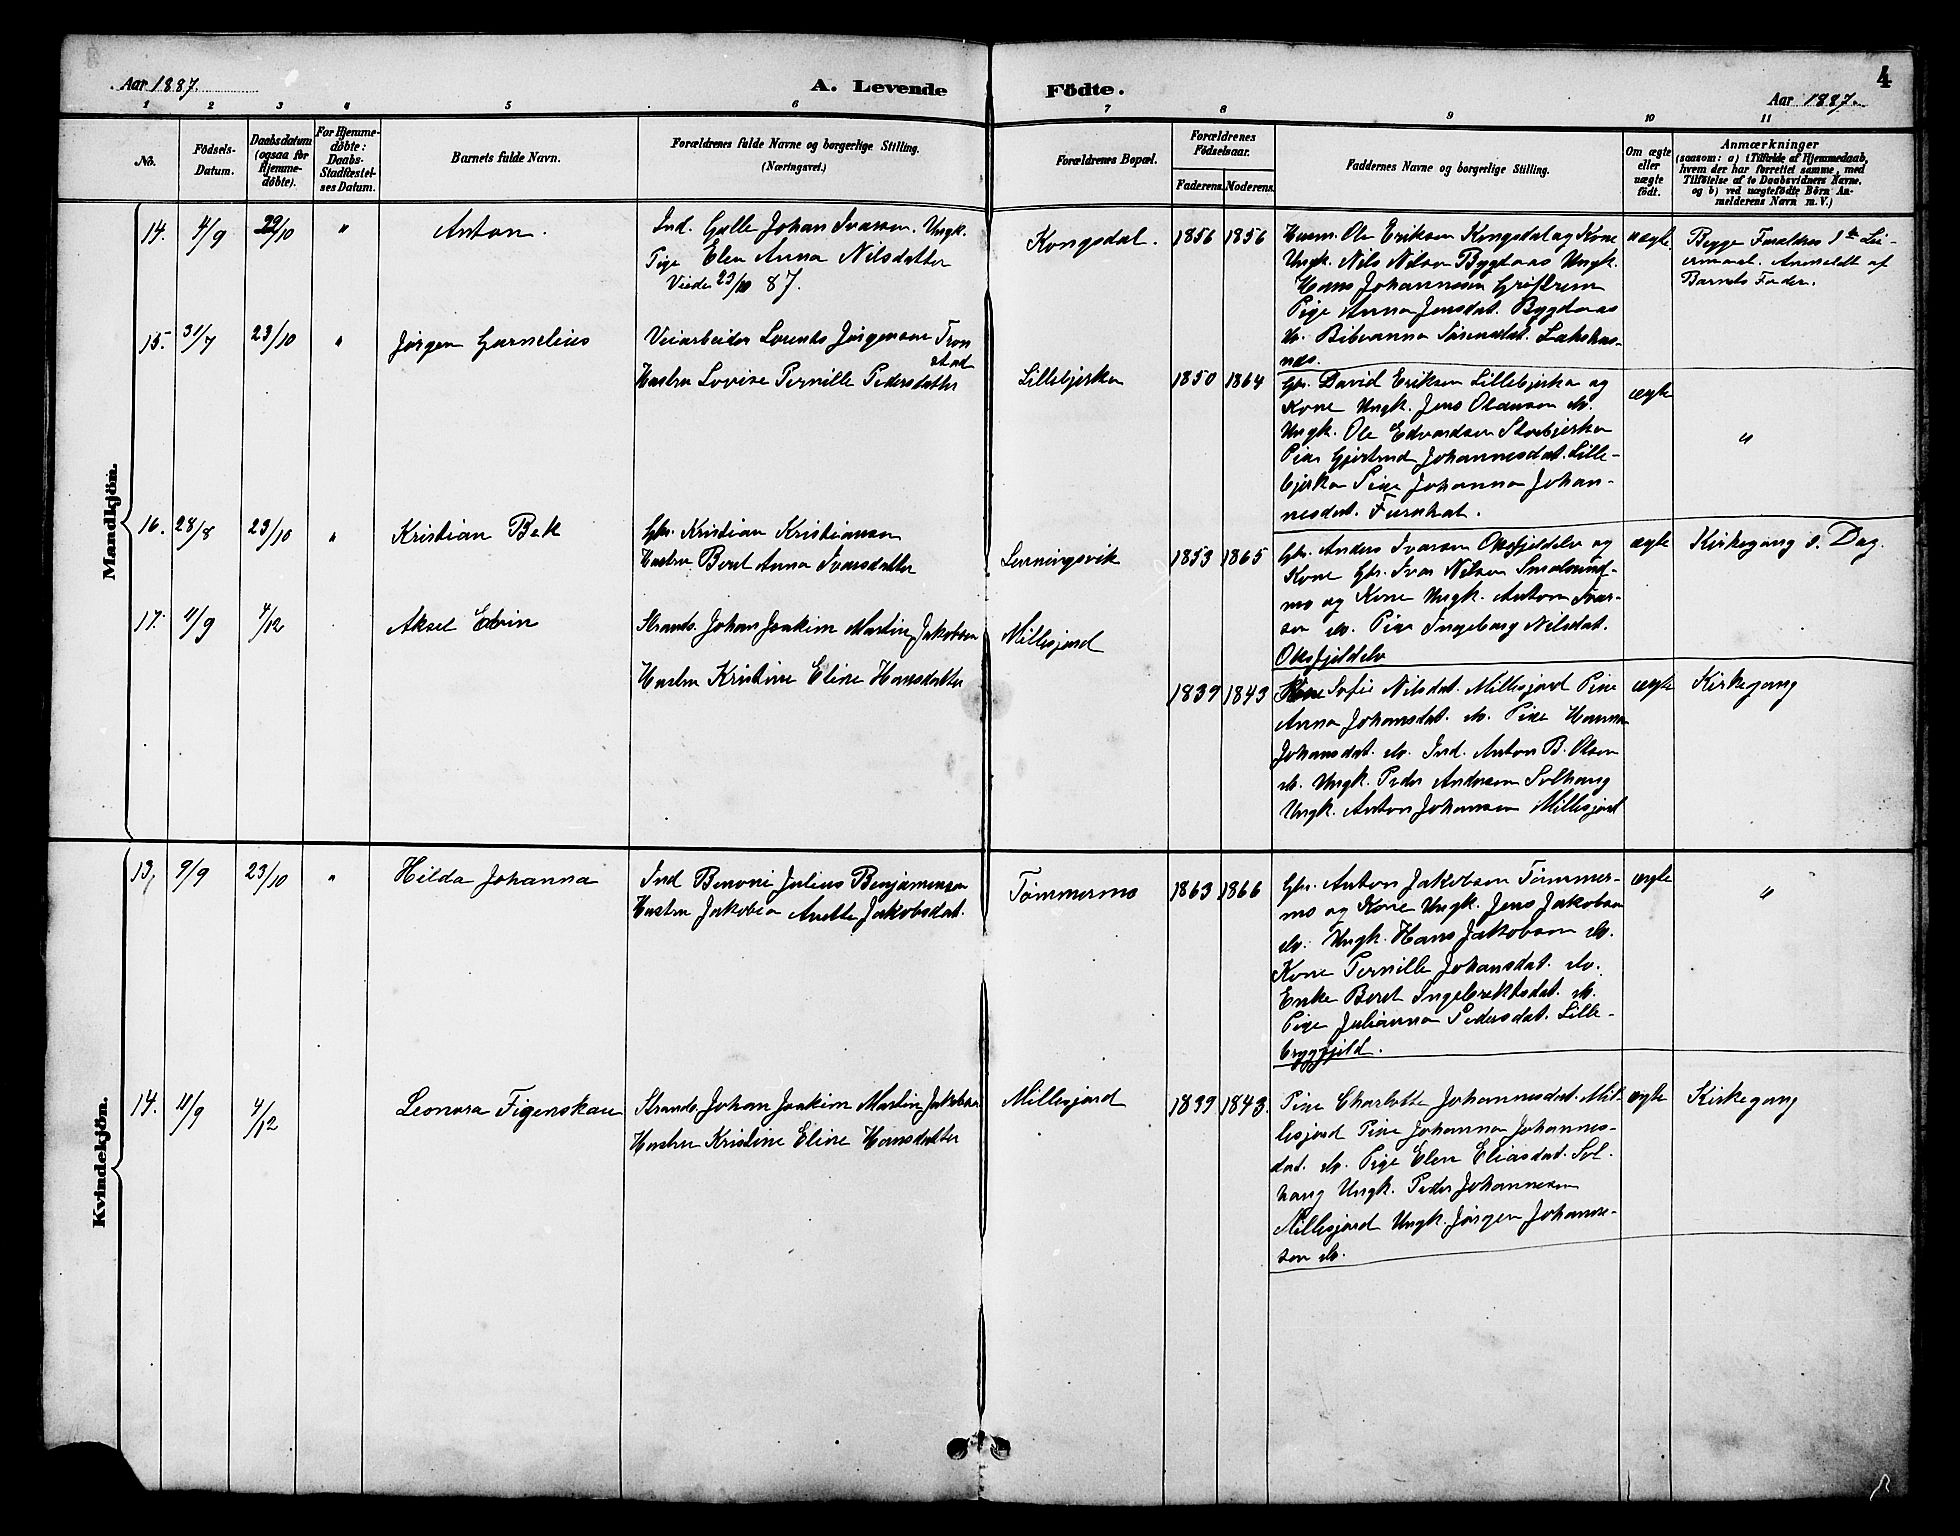 Aar 1887.
A. Levende Födte.
4
Aar 1887.
1 2 3 4 5 6 7 8 9 10 11
No.
Födsels-
Datum.
Daabsdatum
(ogsaa for
Hjemme-
döbte).
For Hjemme-
döbte:
Daabs-
Stadfæstel-
ses Datum.
Barnets fulde Navn.
Forældrenes fulde Navne og borgerlige Stilling.
(Næringsvei.)
Forældrenes Bopæl.
Forældrenes
Födselsaar.
Faderens. Moderens.
Faddernes Navne og borgerlige Stilling.
Om ægte
eller
uægte
födt.
Anmærkninger
(saasom: a) i Tilfælde af Hjemmedaab,
hvem der har forrettet samme, med
Tilföielse af to Daabsvidners Navne,
og b) ved uægtefödte Börn An-
melderens Navn m. V.)
Mandkjön.
14. 4/9 22/10 " Anton.
Ind. Gjælle Johan Ivarsen. Ungk.
Pige Elen Anna Nilsdatter
Viede 23/10 87.
Kongsdal. 1856 1856
Husm. Ole Eriksen Kongsdal og Kone
Ungk. Nils Nilsen Bygdaas Ungk.
Hans Johannesen
Pige Anna Jensdat. Bygdaas
do. Biberanna Sørensdat. Lakshus-
næs.
uægte
Begge Forældres 1ste Lei-
ermaal. Anmeldt af
Barnets Fader.
15. 31/7 23/10 " Jørgen Garnelius
Veiarbeider Lorents Jørgensen Tron
stad
Hustru Lovise Pernille Pedersdatter
Lillebjerka 1850 1864
Gbr. David Eriksen Lillebjerka og
Kone Ungk. Jens Olausen do.
Ungk. Ole Edvardsen Storbjerka
Pige Gjertrud Johannesdat. Lille-
bjerka Pige Johanna Johan-
nesdat. Furuhat.
ægte "
16. 28/8 23/10 " Kristian Bek
Gbr. Kristian Kristiansen
Hustru Beret Anna Ivarsdatter
Leirningsvik 1853 1865
Gbr. Anders Ivarsen Oksfjeldelv og
Kone Gbr. Ivar Nilsen Smalsund-
mo og Kone Ungk. Anton Ivar-
sen do. Pige Ingeborg Nilsdat.
Oksfjeldelv
ægte Kirkegang s. Dag.
17. 11/9 4/12 Aksel Edvin
Strands. Johan Joakim Martin Jakobsen
Hustru Kristine Eline Hansdatter
Millesjord
1839 1843
Kone Sofie Nilsdat. Millesjord Pige
Anna Johansdat. do. Pige Hanna
Johansdat. do. Ind. Anton B. Olsen
do. Ungk. Peder Andersen Solhaug
Ungk. Anton Johansen Millesjord
ægte Kirkegang
Kvindekjön.
13, 9/9 23/10 " Hilda Johanna
Ind Benoni Julius Benjaminsen
Hustru Jakobia Anette Jakobsdat.
Tømmermo 1863 1866
Gbr. Anton Jakobsen Tømmer-
mo og Kone Ungk. Jens Jakobsen
do. Ungk. Hans Jakobsen do.
Kone Pernille Johansdat. do.
Enke Beret Ingebrektsdat. do.
Pige Julianna Pedersdat. Lille-
bryggfjeld.
ægte "
14. 11/9 4/12 Leonora Figenskau
Strands. Johan Joakim Martin Jakobsen
Hustru Kristine Eline Hansdatter
Millesjord 1839 1843.
Pige Charlotte Johannesdat. Mil
lesjord Pige Johanna Johannes-
dat. do. Pige Elen Eliasdat. Sol-
haug Ungk. Peder Johannesen
Millesjord Ungk. Jørgen Johanne-
sen do.
ægte Kirkegang